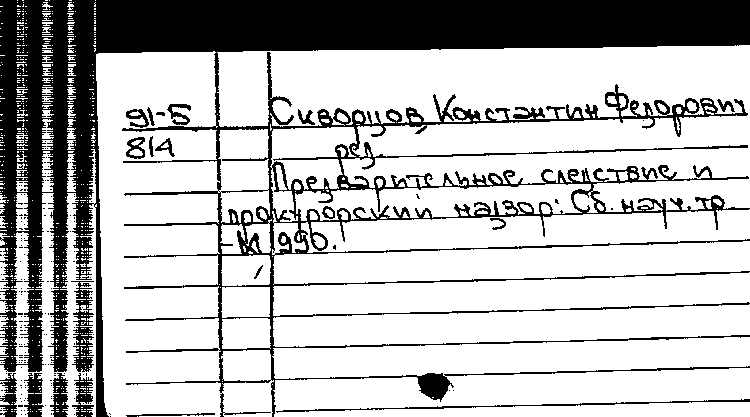 91-5 Скворцов, Константин Федорович
814 ред.
Предварительное следствие и
прокурорский надзор: Сб. науч. тр.
-М, 1990.